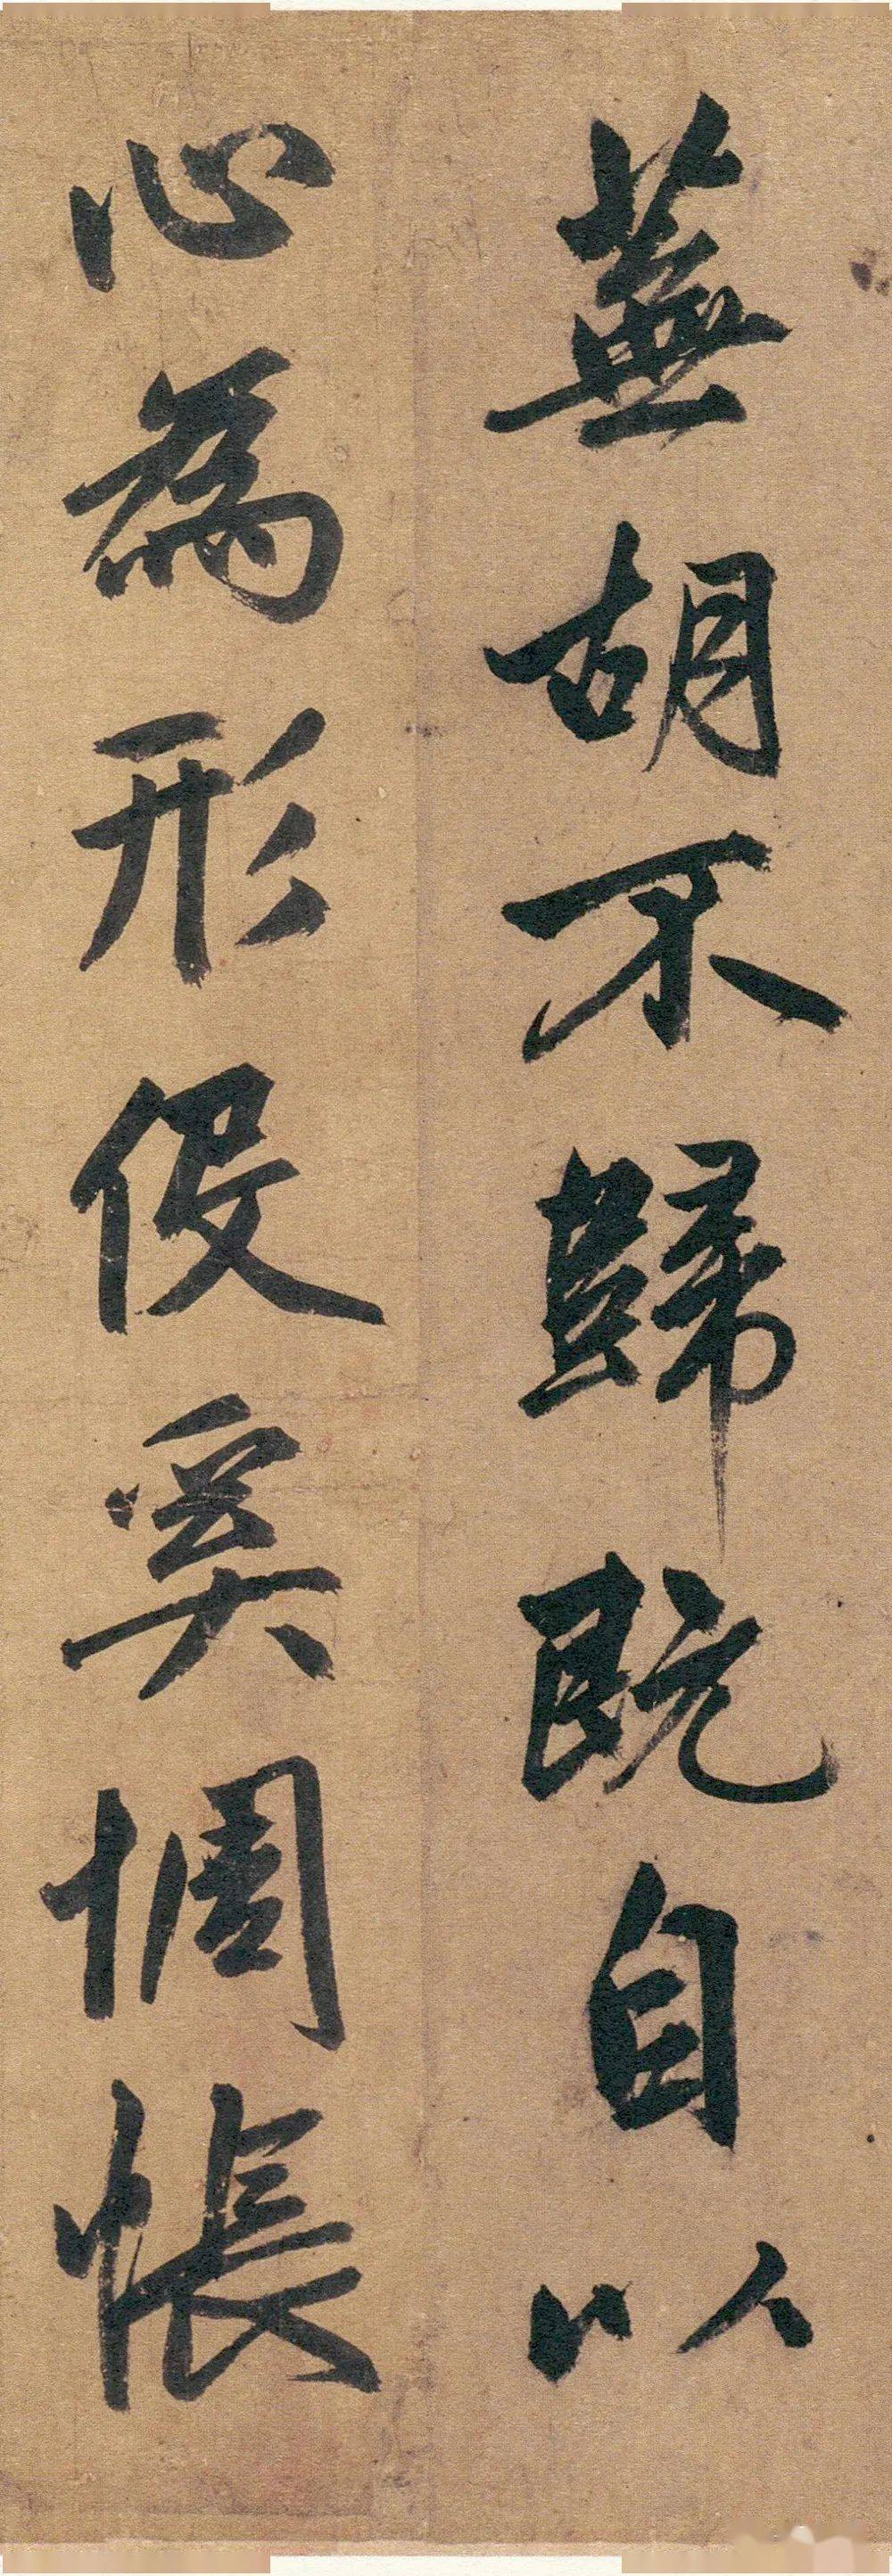 蕪胡不歸既自以
心為形役奚惆悵